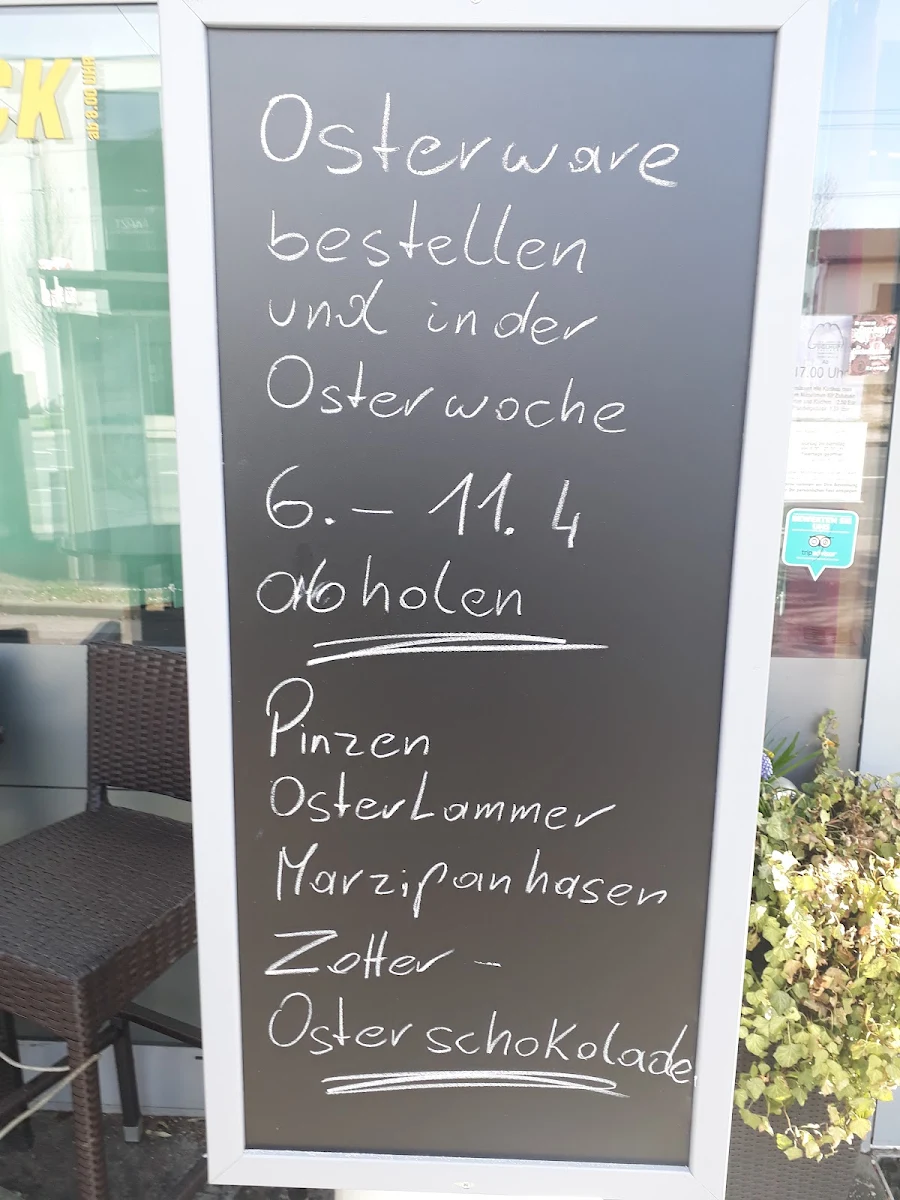 CK
ab 8.00 UHR
Osterware
bestellen
und in der
Osterwoche
6. – 11. 4
abholen
Pinzen
OsterLammer
Marzipanhasen
Zotter -
Osterschokolade
17.00 Uhr
BEWERTEN SIE
UNS
tripadvisor